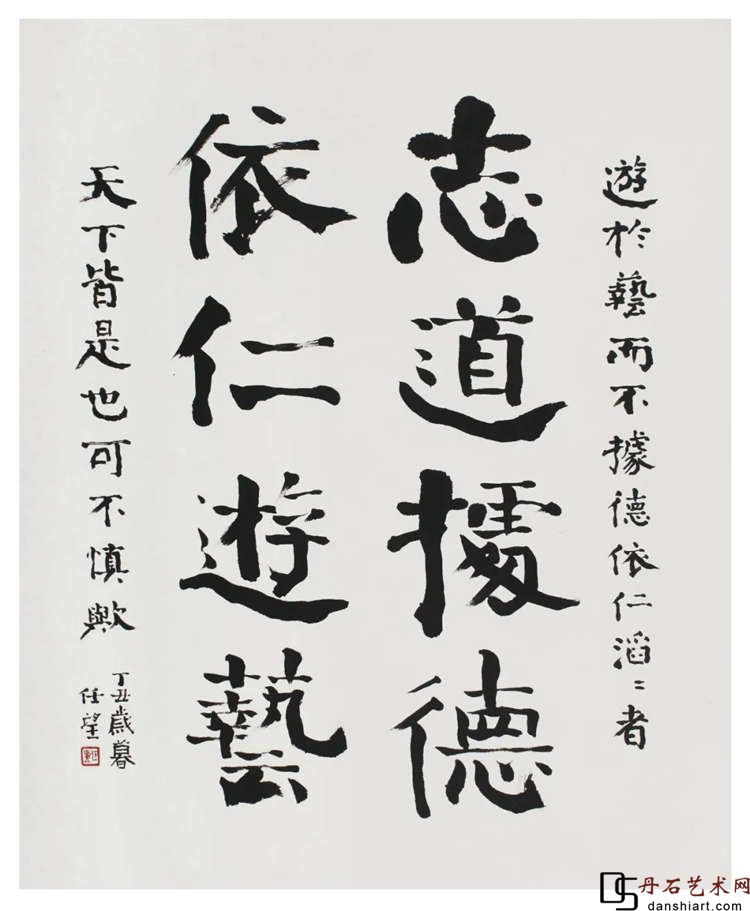 遊於藝而不據德依仁滔〻者
志道據德
依仁遊藝
天下皆是也可不慎歟
丁丑歲暮
任望
丹石艺术网
danshiart.com